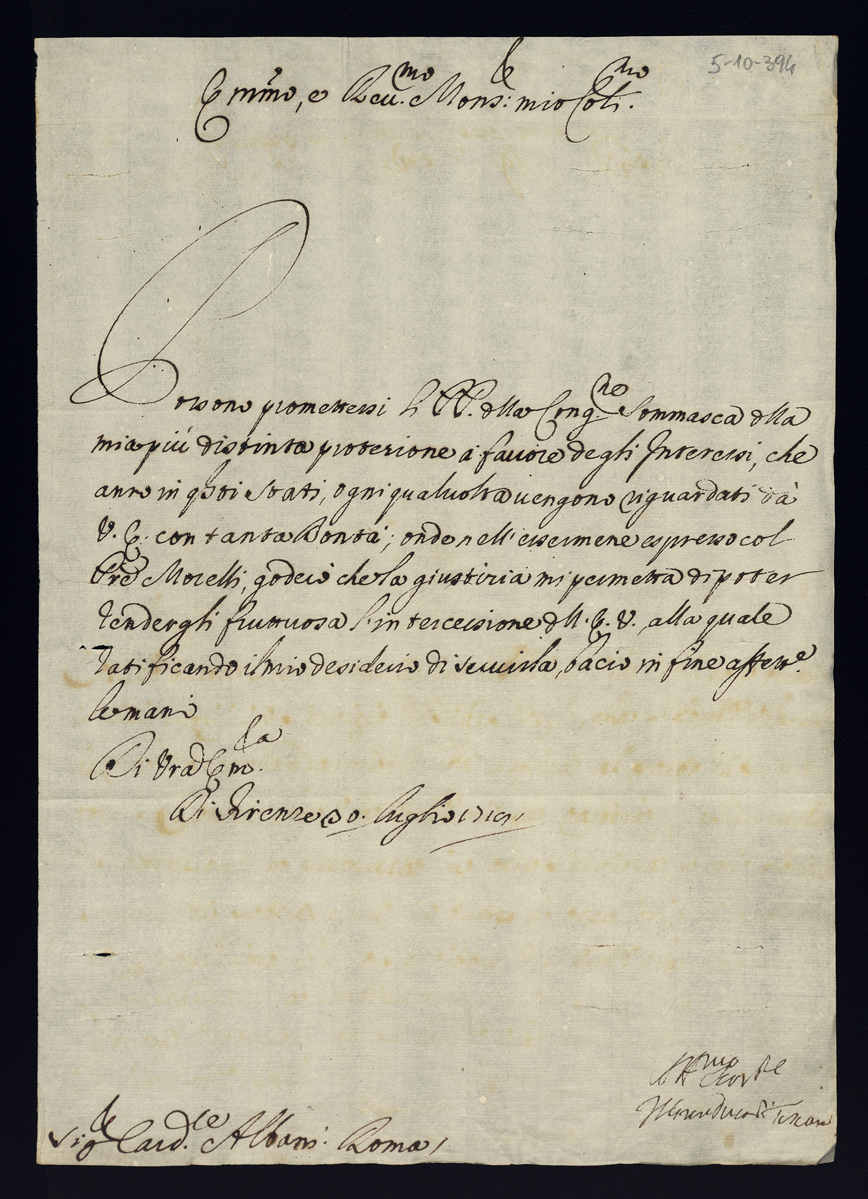 5-10-394
Emmo, e Reu.mo Mons:re mio Col.mo
Possono promettersi li PP. della Cong.ne Sommasca della
mia più distinta protezione à fauore degli Interessi, che
anno in questi Stati, ogni qual uolta uengono riguardati dà
V. E. con tanta Bontà; onde nell'essermene espresso col
Pre Morelli, goderò che la giustizia mi permetta di poter
rendergli fruttuosa l'intercessione dell' E. V. alla quale
ratificando il mio desiderio di seruirla, bacio in fine affett.e
le mani
Di Vra Em.la
Di Firenze 30. Luglio
Sig.re Card.le Albani. Roma